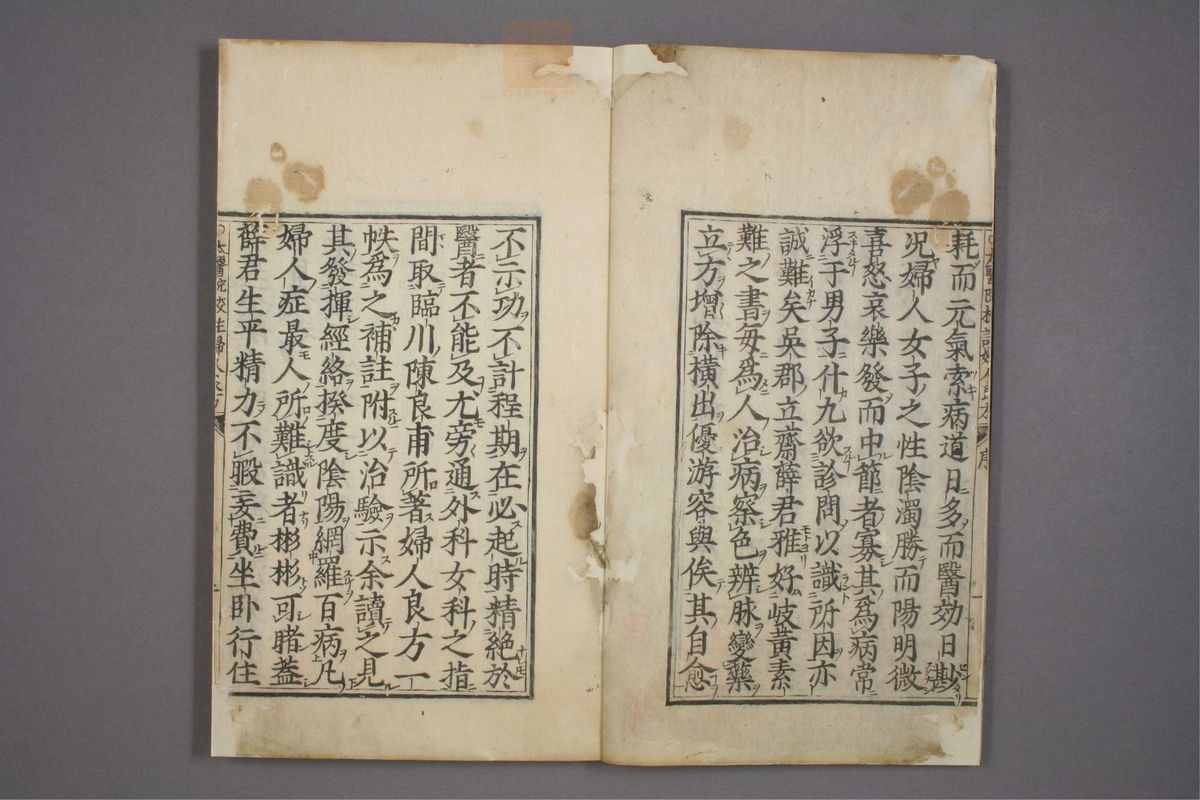 耗而元氣索病道日多而醫効日尠
况婦人女子之性陰濁勝而陽明微
喜怒哀樂發而中節者寡其為病常
浮于男子什九欲診問以識所因亦
誠難矣吳郡立齋薛君雅好岐黃素
難之書每為人治病察色辨脉變藥
立方增除橫出優游容與俟其自愈
不示功不計程期在必起時精絕於
醫者不能及尤旁通外科女科之指
間取臨川陳良甫所著婦人良方一
帙為之補註附以治驗示余讀之見
其發揮經絡揆度陰陽網羅百病凡
婦人症最人所難識者彬彬可睹蓋
薛君生平精力不暇妄費坐卧行住